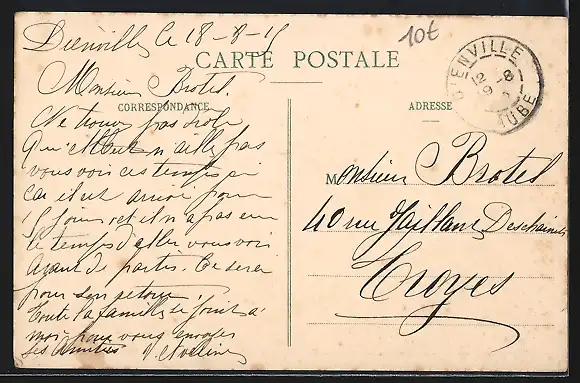 Dienville le 18-8-15
10€
CARTE POSTALE
Monsieur Brotel.
CORRESPONDANCE
Ne trouvez pas drôle
qu' n'aille pas
vous voir ces temps ci
car il est arrivé pour
15 jours et il n'a pas eu
le temps d'aller vous voir
avant de partir. Ce sera
pour son retour
toute la famille se joint à
moi pour vous envoyer
ses amitiés
ADRESSE
Monsieur Brotel
40 rue Gaillard
Troyes
DIENVILLE
AUBE